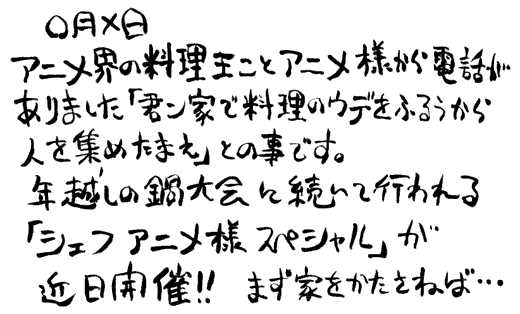 〇月×日
アニメ界の料理王ことアニメ様から電話が
ありました「君ン家で料理のウデをふるうから
人を集めたまえ」との事です。
年越しの鍋大会に続いて行われる
「シェフ アニメ様 スペシャル」が
近日開催!! まず家をかたさねば…